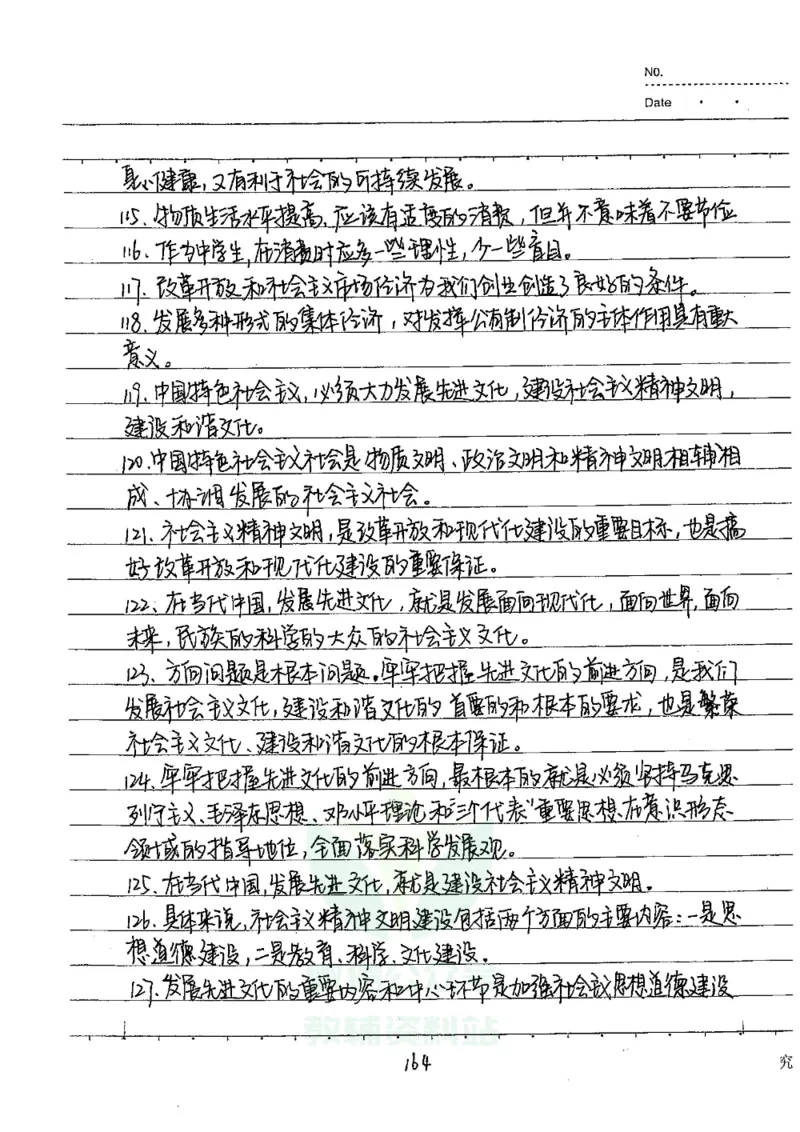 NO.
Date
身心健康，又有利于社会的可持续发展。
115、物质生活水平提高，应该有适度的消费，但并不意味着不要节俭
116、作为中学生，在消费时应多一些理性，少一些盲目。
117、改革开放和社会主义市场经济为我们创业创造了良好的条件。
118、发展多种形式的集体经济，对发挥公有制经济的主体作用具有重大
意义。
119、中国特色社会主义，必须大力发展先进文化，建设社会主义精神文明，
建设和谐文化。
120、中国特色社会主义社会是物质文明、政治文明和精神文明相辅相
成、协调发展的社会主义社会。
121、社会主义精神文明，是改革开放和现代化建设的重要目标，也是搞
好改革开放和现代化建设的重要保证。
122、在当代中国，发展先进文化，就是发展面向现代化，面向世界，面向
未来，民族的科学的大众的社会主义文化。
123、方向问题是根本问题。牢牢把握先进文化的前进方向，是我们
发展社会主义文化，建设和谐文化的首要的和根本的要求，也是繁荣
社会主义文化、建设和谐文化的根本保证。
124、牢牢把握先进文化的前进方向，最根本的就是必须坚持马克思
列宁主义、毛泽东思想、邓小平理论和"三个代表"重要思想在意识形态
领域的指导地位，全面落实科学发展观。
125、在当代中国，发展先进文化，就是建设社会主义精神文明。
126、具体来说，社会主义精神文明建设包括两个方面的主要内容：一是思
想道德建设，二是教育、科学、文化建设。
127、发展先进文化的重要内容和中心环节是加强社会主义思想道德建设
教辅资料站
164
究